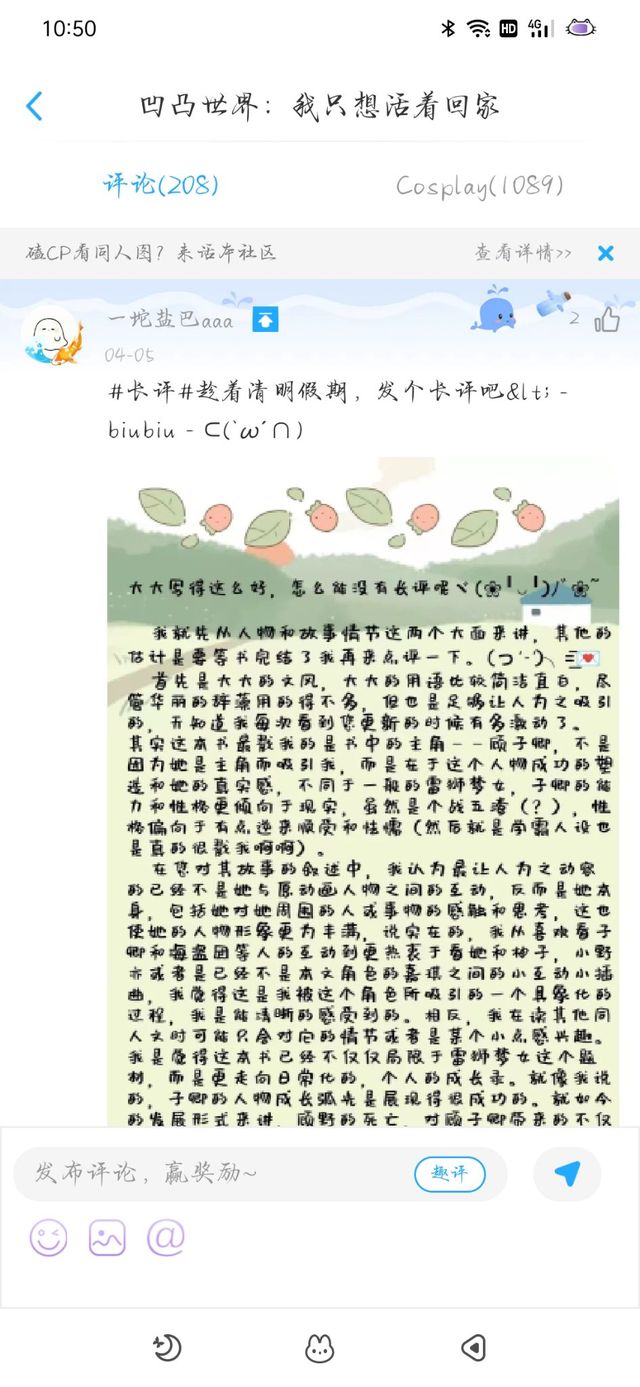 10:50
HD 4G
凹凸世界：我只想活着回家
评论(208)
Cosplay(1089)
磕CP看同人图？来话本社区
查看详情>>
一坨盐巴aaa
2
04-05
#长评#趁着清明假期，发个长评吧&lt; -
biubiu - ⊂(`ω´∩)
大大写得这么好，怎么能没有长评呢ヾ(❀╹◡╹)ﾉﾞ❀~
我就先从人物和故事情节这两个大面来讲，其他的
估计是要等书完结了我再来点评一下。(つ'-')╮ =͟͟͞͞💌
首先是大大的文风，大大的用语比较简洁直白，尽
管华丽的辞藻用的得不多，但也是足够让人为之吸引
的，天知道我每次看到您更新的时候有多激动了。
其实这本书最戳我的是书中的主角--顾子卿，不是
因为她是主角而吸引我，而是在于这个人物成功的塑
造和她的真实感，不同于一般的雷狮梦女，子卿的能
力和性格更倾向于现实，虽然是个战五渣（？），性
格偏向于有点逆来顺受和怯懦（然后就是学霸人设也
是真的很戳我啊啊）。
在您对其故事的叙述中，我认为最让人为之动容
的已经不是她与原动画人物之间的互动，反而是她本
身，包括她对她周围的人或事物的感触和思考，这也
使她的人物形象更为丰满，说实在的，我从喜欢看子
卿和海盗团等人的互动到更热衷于看她和柚子，小野
亦或者是已经不是本文角色的嘉琪之间的小互动小插
曲，我觉得这是我被这个角色所吸引的一个具象化的
过程，我是能清晰的感受到的。相反，我在读其他同
人文时可能只会对它的情节或者是某个小点感兴趣。
我是觉得这本书已经不仅仅局限于雷狮梦女这个题
材，而是更走向日常化的，个人的成长录。就像我说
的，子卿的人物成长弧光是展现得很成功的。就如今
的发展形式来讲，顾野的死亡，对顾子卿带来的不仅
发布评论，赢奖励~
趣评